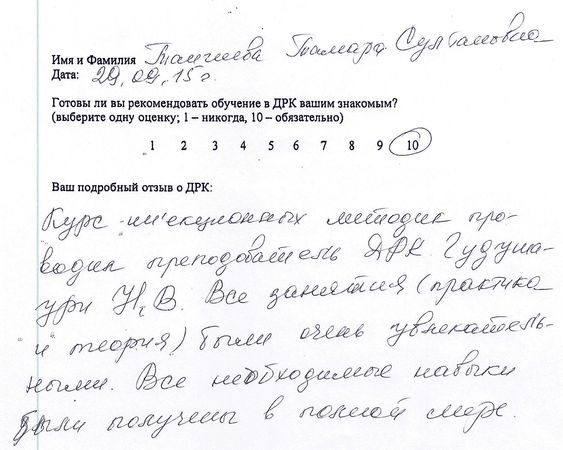 Имя и Фамилия Тангиева Тамара Султановна
Дата: 29.09.15 г.
Готовы ли вы рекомендовать обучение в ДРК вашим знакомым?
(выберите одну оценку; 1 – никогда, 10 – обязательно)
1 2 3 4 5 6 7 8 9 10
Ваш подробный отзыв о ДРК:
Курс инъекционных методик про-
водил преподаватель ДРК Гудуша-
ури Н.В. Все занятия (практика
и теория) были очень увлекатель-
ными. Все необходимые навыки
были получены в полной мере.